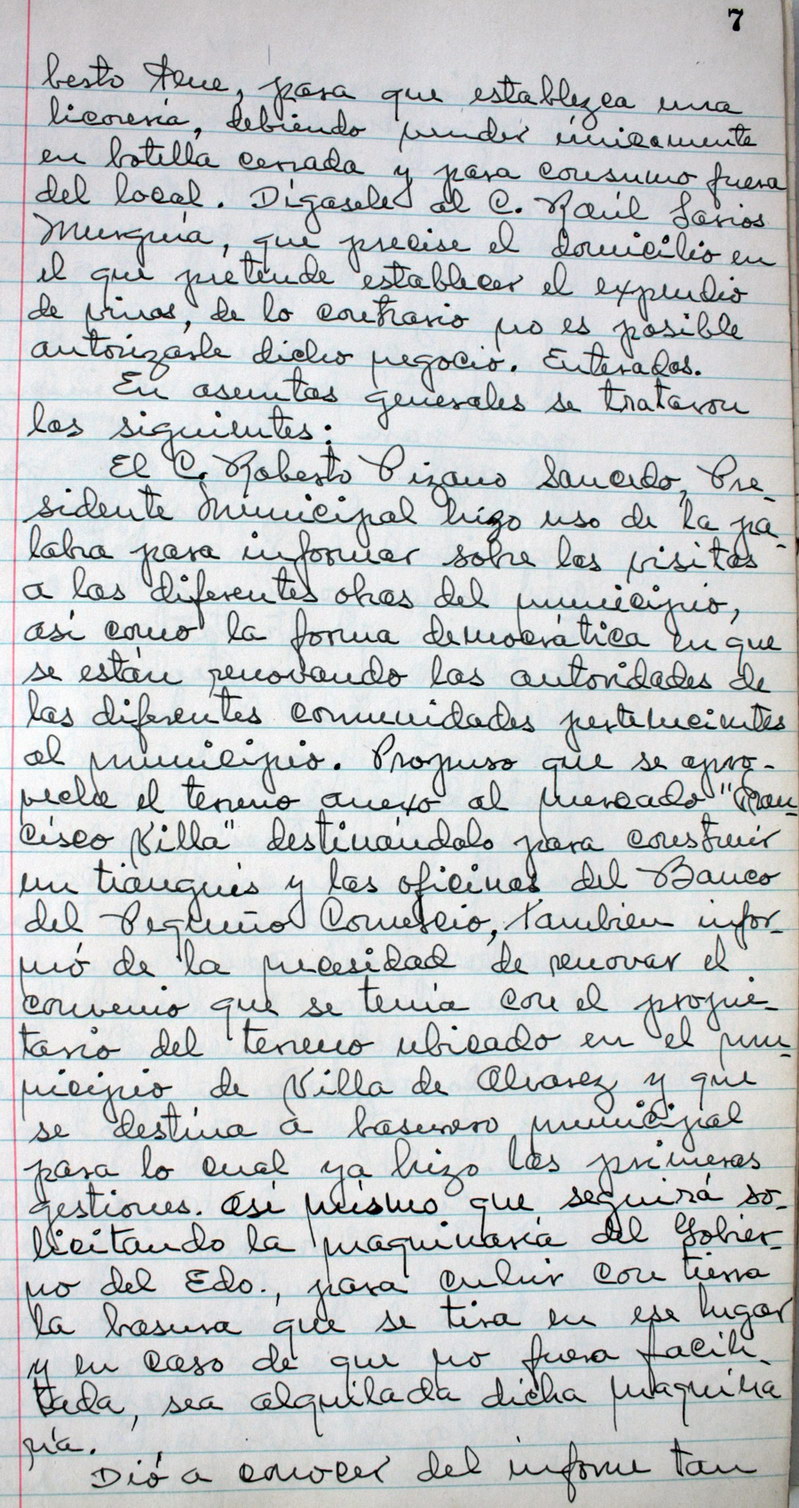 7
besto Aeue, para que establezca una
licorería, debiendo vender únicamente
en botella cerrada y para consumo fuera
del local. Dígasele al C. Raúl Larios
Munguía, que precise el domicilio en
el que pretende establecer el expendio
de vinos, de lo contrario no es posible
autorizarle dicho negocio. Enterados.
En asuntos generales se trataron
los siguientes:
El C. Roberto Pizano Saucedo, Pre-
sidente Municipal hizo uso de la pa-
labra para informar sobre las visitas
a las diferentes obras del municipio,
así como la forma democrática en que
se están renovando las autoridades de
las diferentes comunidades pertenecientes
al municipio. Propuso que se apro-
veche el terreno anexo al mercado "Fran-
cisco Villa" destinándolo para construir
un tianguis y las oficinas del Banco
del Pequeño Comercio, también infor-
mó de la necesidad de renovar el
convenio que se tenía con el propie-
tario del terreno ubicado en el mu-
nicipio de Villa de Alvarez y que
se destina a basurero municipal
para lo cual ya hizo las primeras
gestiones. Así mismo que seguirá so-
licitando la maquinaria del Gobier-
no del Edo., para cubrir con tierra
la basura que se tira en ese lugar
y en caso de que no fuera facili-
tada, sea alquilada dicha maquina
ria.
Dió a conocer del informe tan